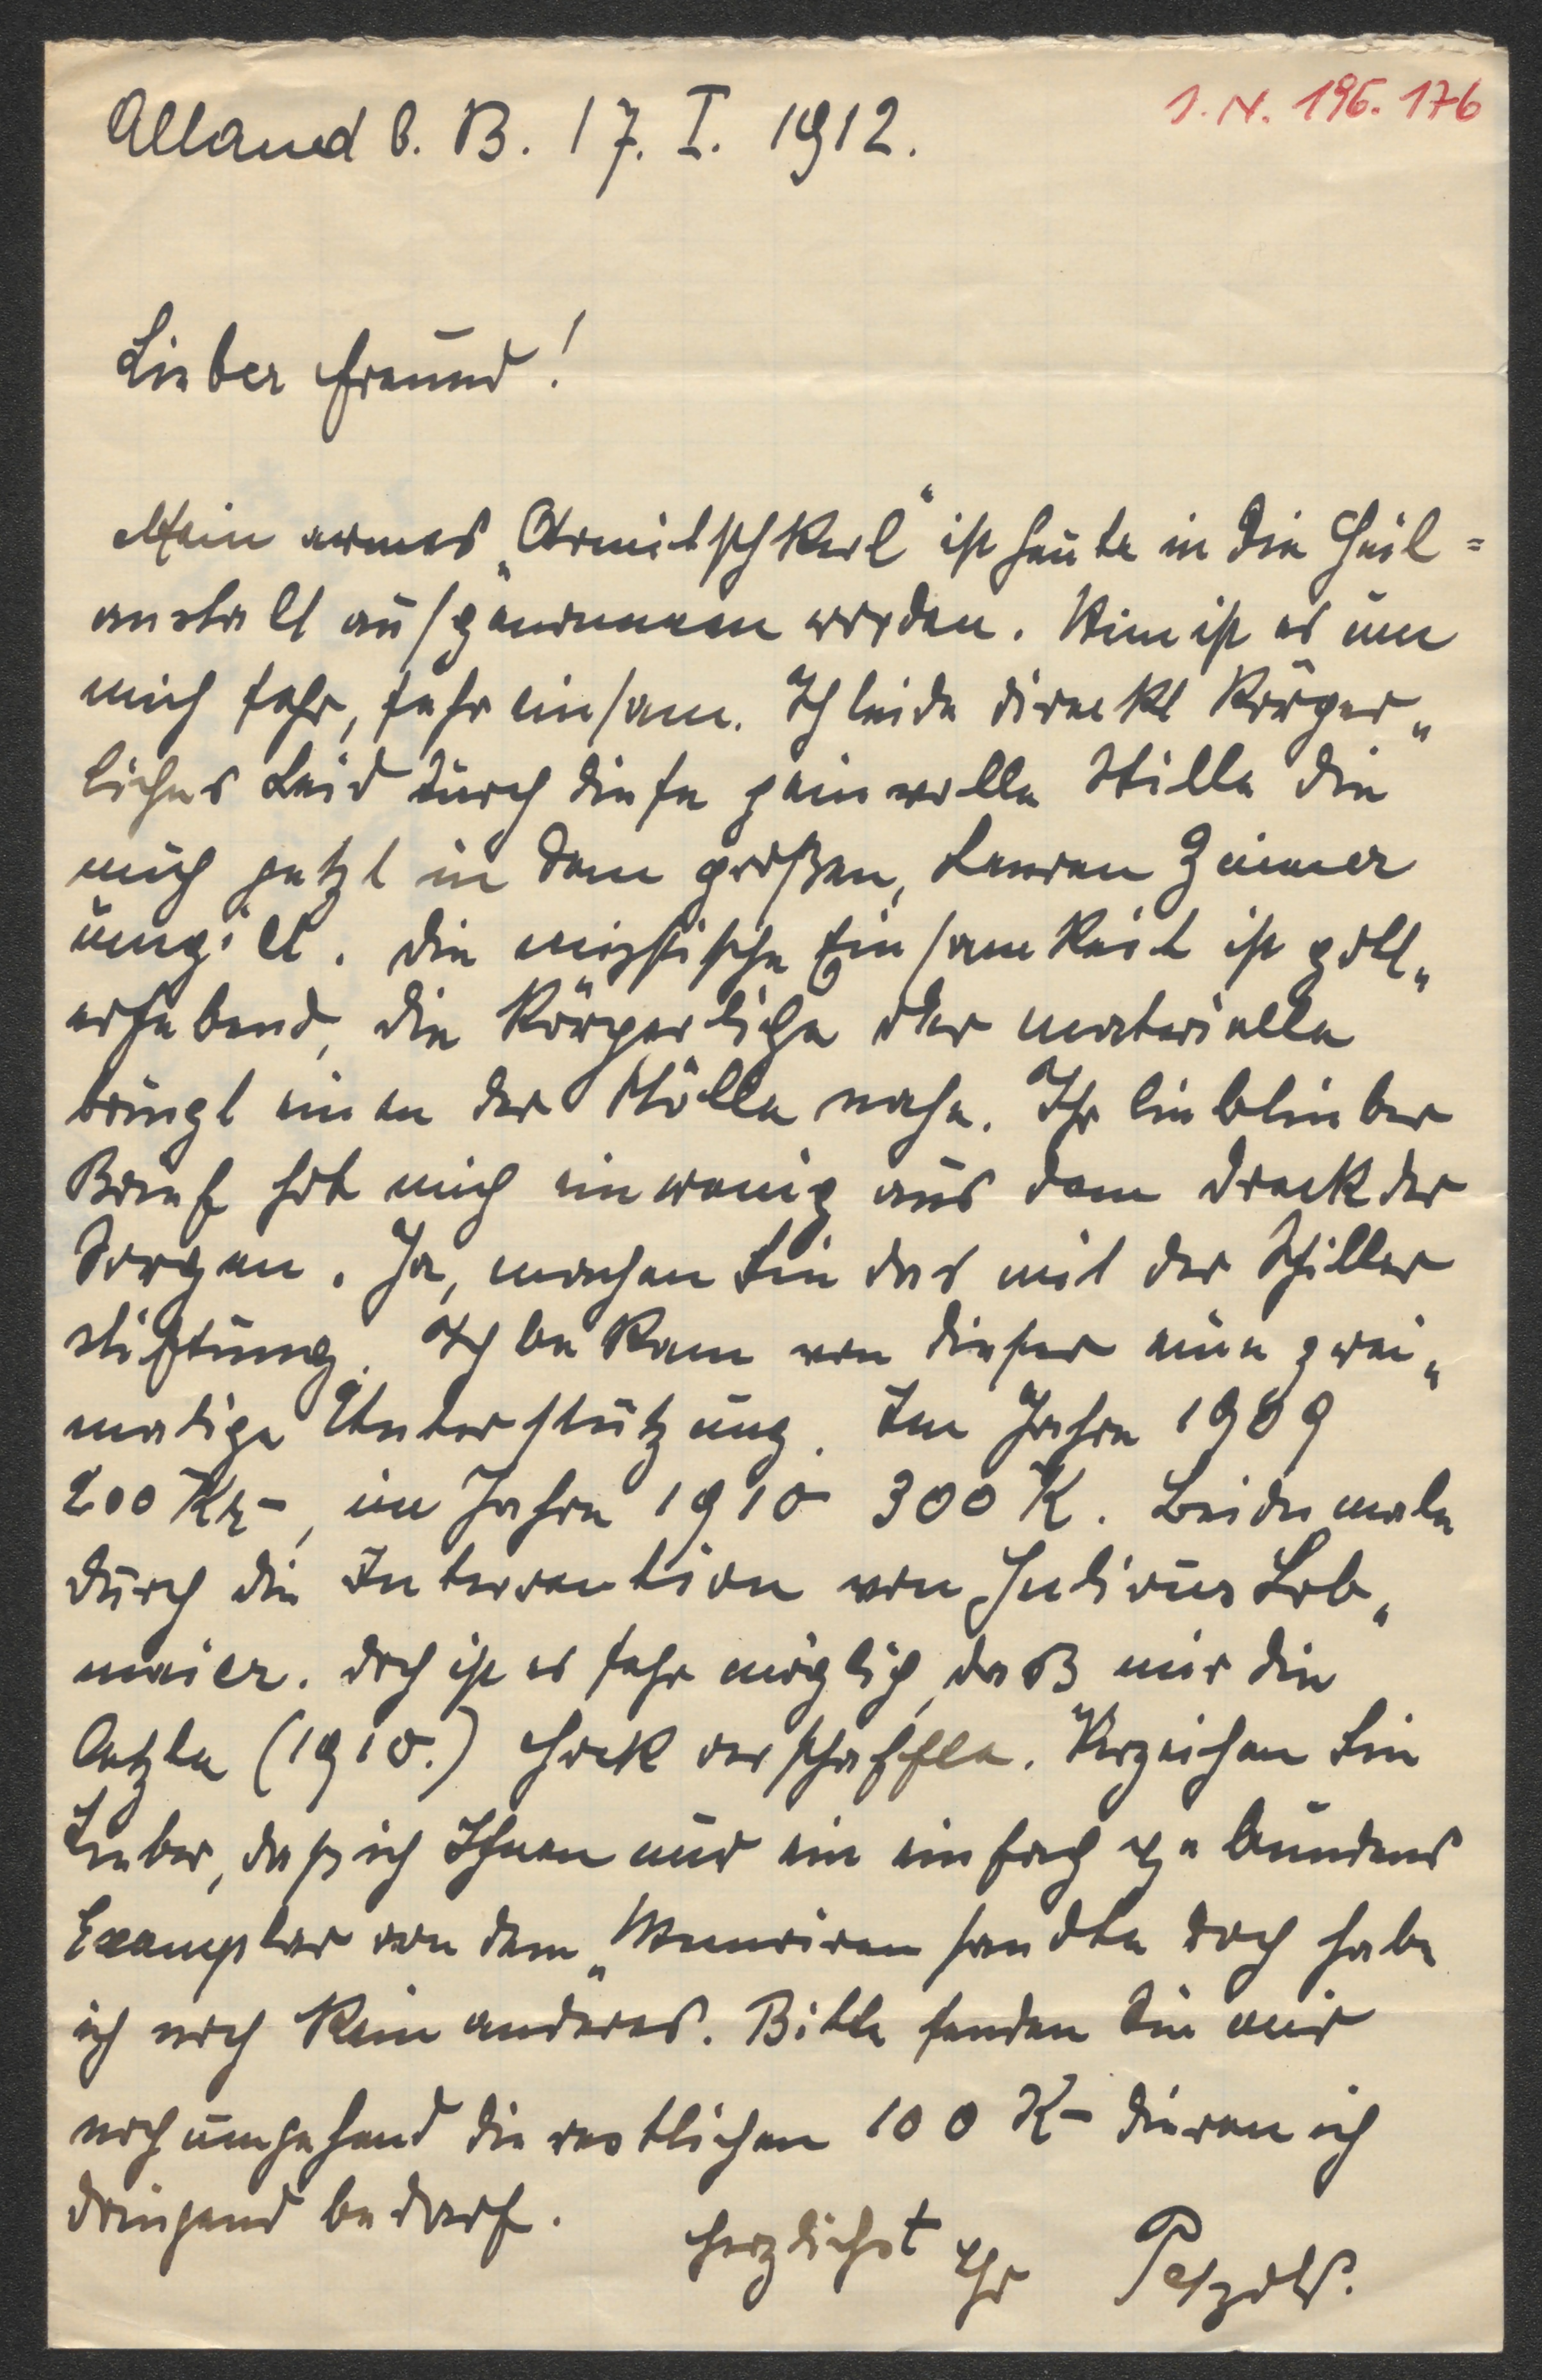 Alland b. B. 17. I. 1912.
I. N. 196.176
Lieber Freund!
Mein armes „Armitschkerl“ ist heute in die Heil=
anstalt aufgenommen worden. Nun ist es um
mich sehr, sehr einsam. Ich leide direckt körper„
liches Leid durch diese peinvolle Stille die
mich jetzt in dem großen, leeren Zimmer
umgibt. Die mystische Einsamkeit ist gott„
erhebend, die körperliche oder materielle
bringt einen der Hölle nahe. Ihr lieblieber
Brief hob mich ein wenig aus dem Druck der
Sorgen. Ja, machen Sie das mit der Schiller
stiftung. Ich bekam von dieser eine zwei„
malige Unterstützung. Im Jahre 1909
200 Kr-, im Jahre 1910 300 K. Beidemale
durch die Intervention von Lob„
maier. Doch ist es sehr möglich, daß mir die
letzte (1910.) Hock verschaffte. Verzeihen Sie
Lieber, daß ich Ihnen nur ein einfach gebundens
Exemplar von dem „Memoiren sandte doch habe
ich noch kein anderes. Bitte senden Sie mir
noch umgehend die restlichen 100 K- deren ich
dringend bedarf.
Herzlichst Ihr Petzold.